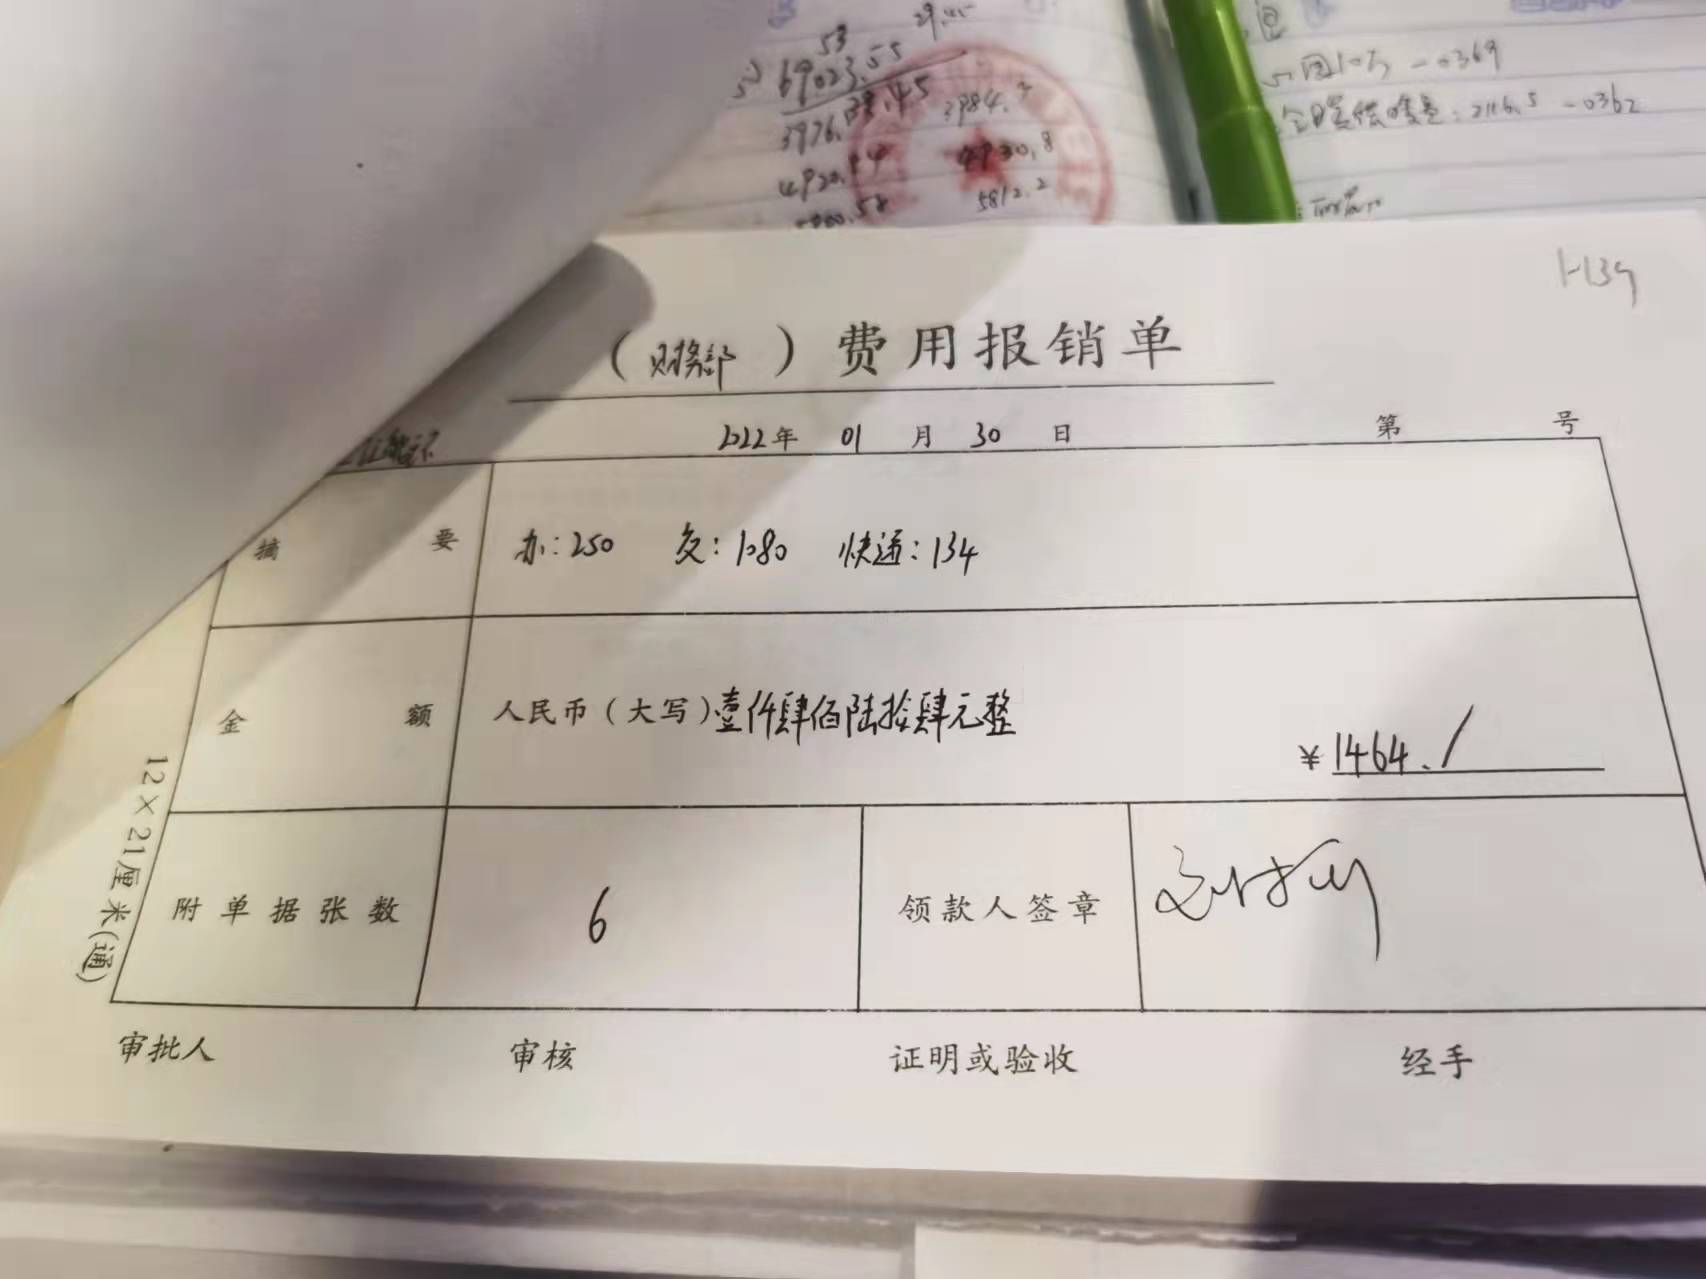 53
29.45
69023.55
3976.45
3984.
4920.44
4930.8
5812.2
-0369
2116.5 -0362
1-139
（财务部）费用报销单
2022年 01 月 30 日 第 号
摘 要 办:250 交:1080 快递:134
金 额 人民币（大写）壹仟肆佰陆拾肆元整
¥1464./
附单据张数 6 领款人签章
审批人 审核 证明或验收 经手
12×21厘米(通)